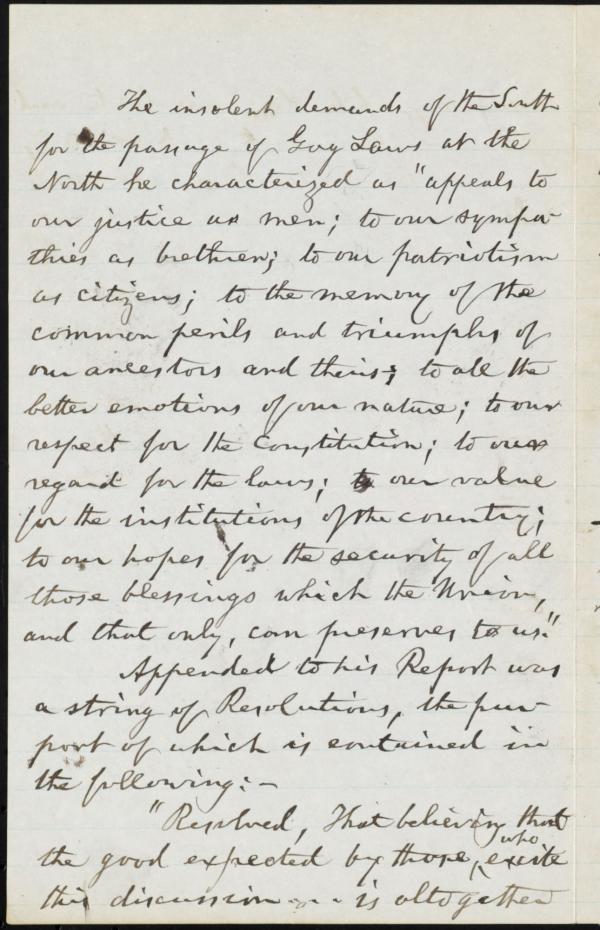 The insolent demands of the South
for the passage of Gag Laws at the
North he characterized as "appeals to
our justice as men; to our sympa-
thies as brethren; to our patriotism
as citizens; to the memory of the
common perils and triumphs of
our ancestors and theirs; to all the
better emotions of our nature; to our
respect for the Constitution; to our
regard for the laws; to our value
for the institutions of the country;
to our hopes for the security of all
those blessings which the Union,
and that only, can preserve to us."
Appended to his Report was
a string of Resolutions, the pur-
port of which is contained in
the following:—
"Resolved, That believing that
the good expected by those, who excite
this discussion ... is altogether